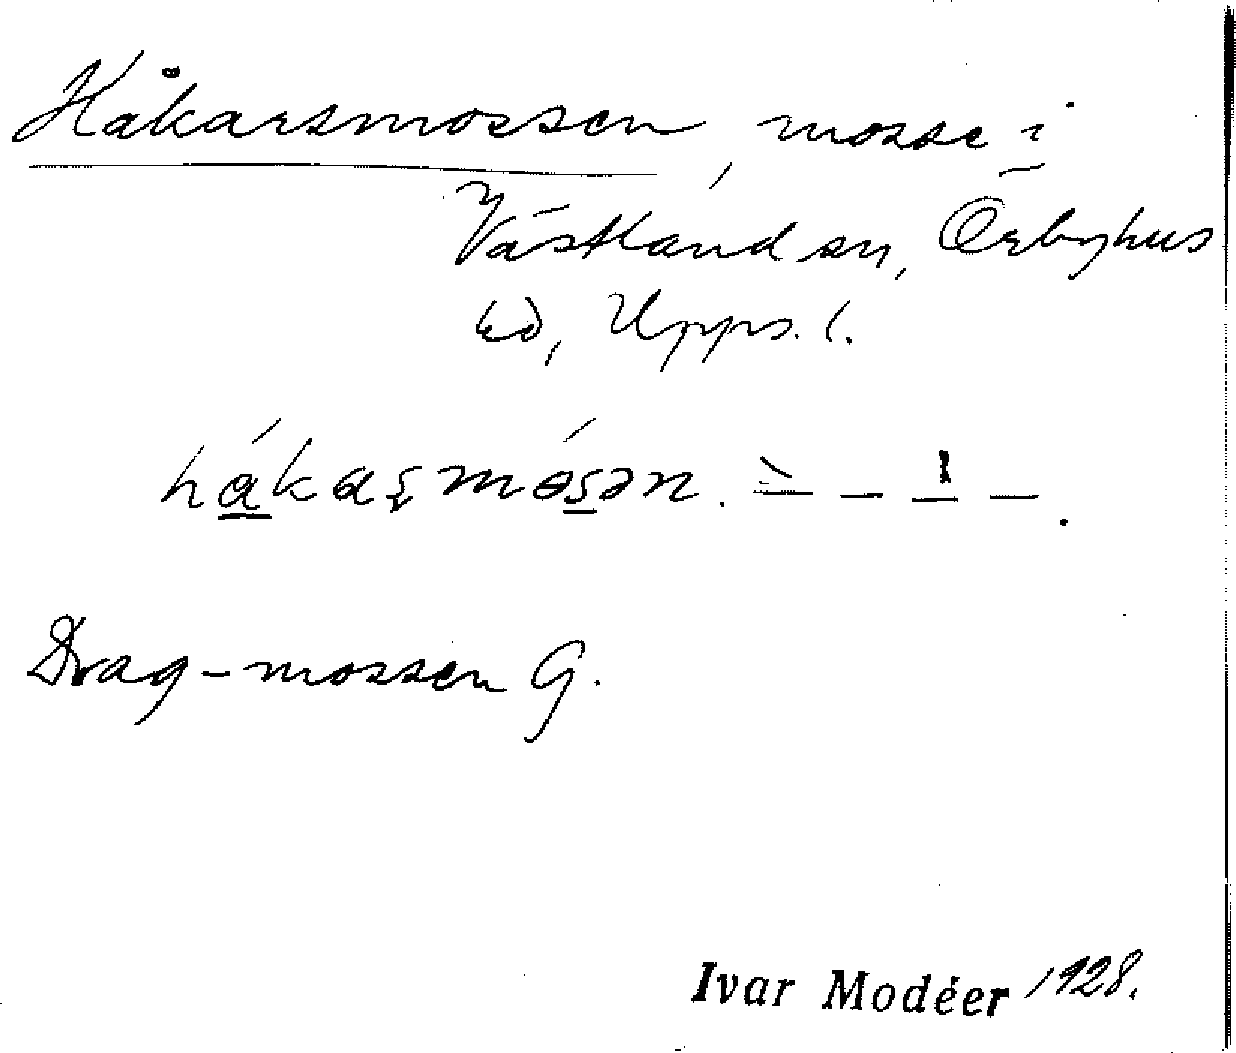 Håkarsmossen, mosse i
Västland sn, Örbyhus
hd, Upps. l.
hákaʂmósən.
Drag-mossen G.
Ivar Modéer 1928.